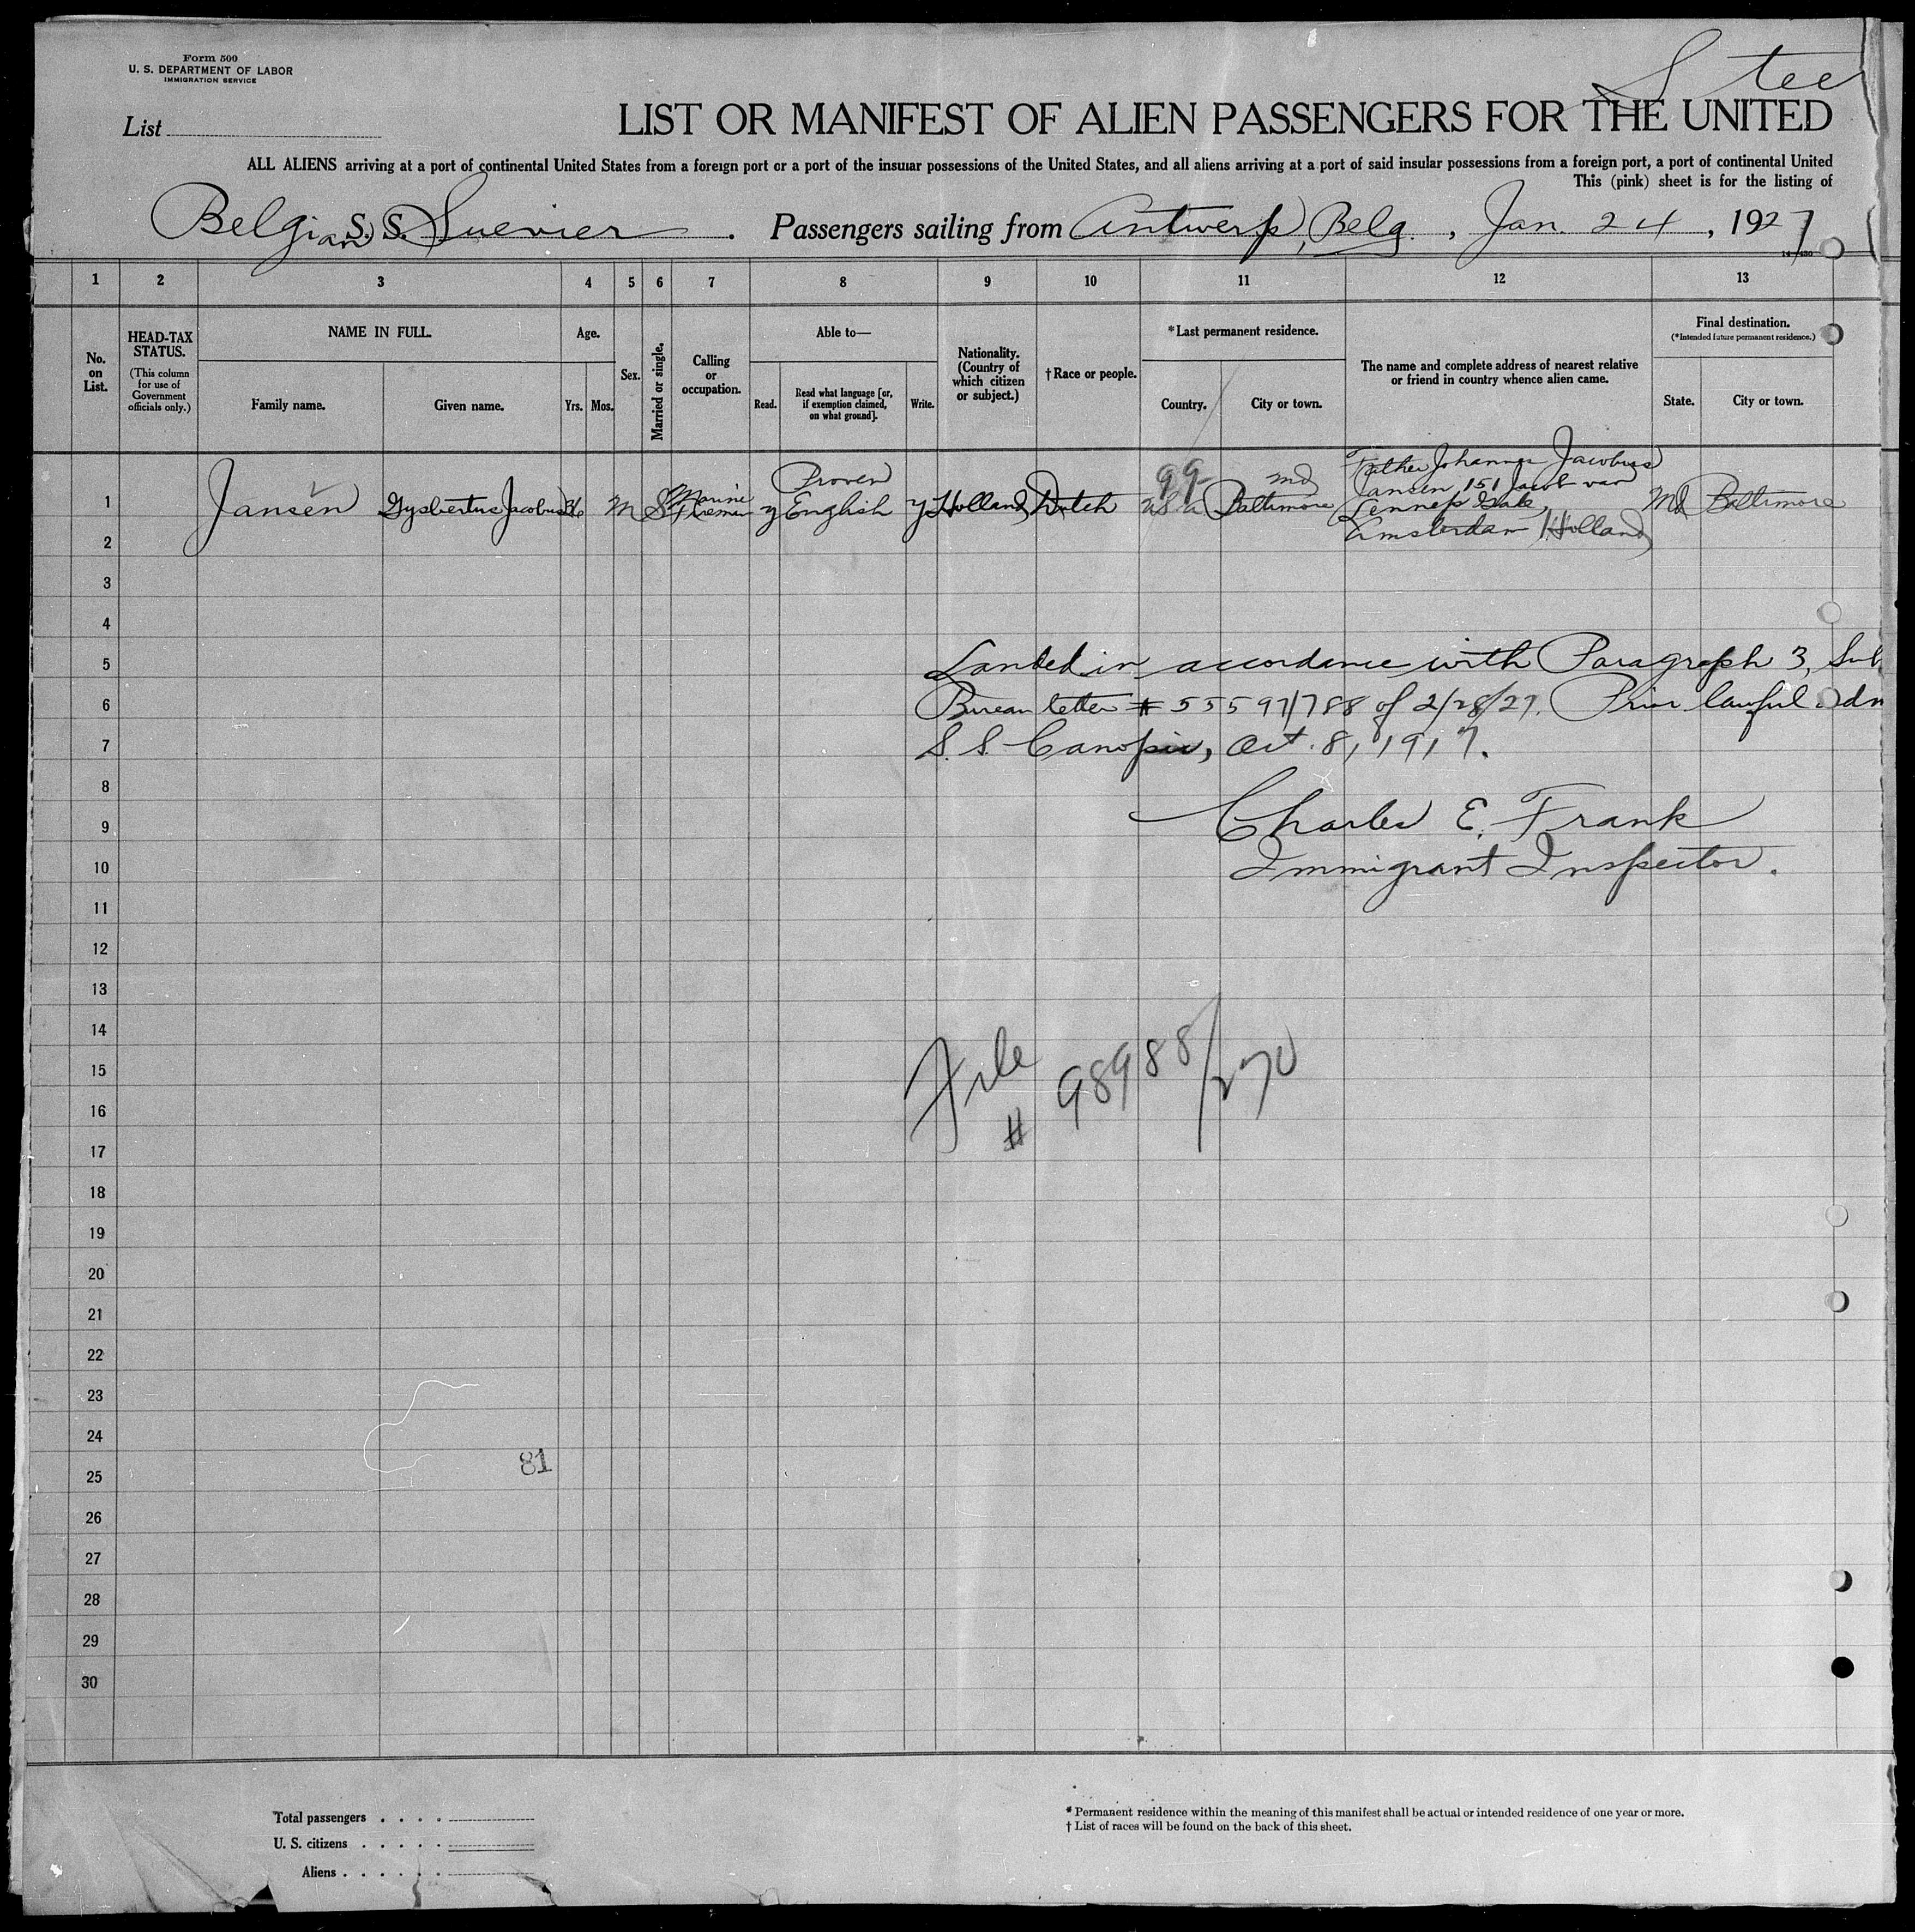 Form 500
U. S. DEPARTMENT OF LABOR
IMMIGRATION SERVICE
List
LIST OR MANIFEST OF ALIEN PASSENGERS FOR THE UNITED
ALL ALIENS arriving at a port of continental United States from a foreign port or a port of the insular possessions of the United States, and all aliens arriving at a port of said insular possessions from a foreign port, a port of continental United
This (pink) sheet is for the listing of
Belgian S. S. Suevier . Passengers sailing from Antwerp, Belg. , Jan. 24 , 1927
1 2 3 4 5 6 7 8 9 10 11 12 13
No. on List.
HEAD-TAX STATUS.
(This column for use of Government officials only.)
NAME IN FULL.
Family name.
Given name.
Age.
Yrs.
Mos.
Sex.
Married or single.
Calling or occupation.
Able to—
Read.
Read what language [or, if exemption claimed, on what ground].
Write.
Nationality. (Country of which citizen or subject.)
† Race or people.
* Last permanent residence.
Country.
City or town.
The name and complete address of nearest relative or friend in country whence alien came.
Final destination.
(*Intended future permanent residence.)
State.
City or town.
1 Jansen Gysbertus Jacobus M S Marine Fireman y Proven English y Holland Dutch 99 USA Md Baltimore Father Johannes Jacobus Jansen, 151 Jacob van Lennep Amsterdam Holland Md Baltimore
2
3
4
5 Landed in accordance with Paragraph 3, Sub
6 Bureau letter # 55597/788 of 2/28/27. Prior lawful adm
7 S. S. Canopic, Oct. 8, 1917.
8
9 Charles E. Frank
10 Immigrant Inspector.
11
12
13
14
15 File # 98988/270
16
17
18
19
20
21
22
23
24
81
25
26
27
28
29
30
Total passengers . . . .
U. S. citizens . . . . .
Aliens . . . . . .
* Permanent residence within the meaning of this manifest shall be actual or intended residence of one year or more.
† List of races will be found on the back of this sheet.